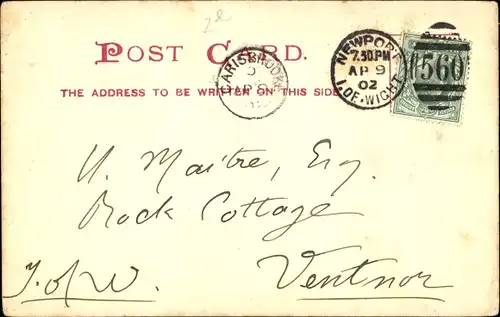 2d
POST CARD.
THE ADDRESS TO BE WRITTEN ON THIS SIDE
CARISBROOKE
NEWPORT
7.30PM
AP 9
02
I. OF. WIGHT
560
Maitre, Esq.
Rock Cottage
I. of W. Ventnor